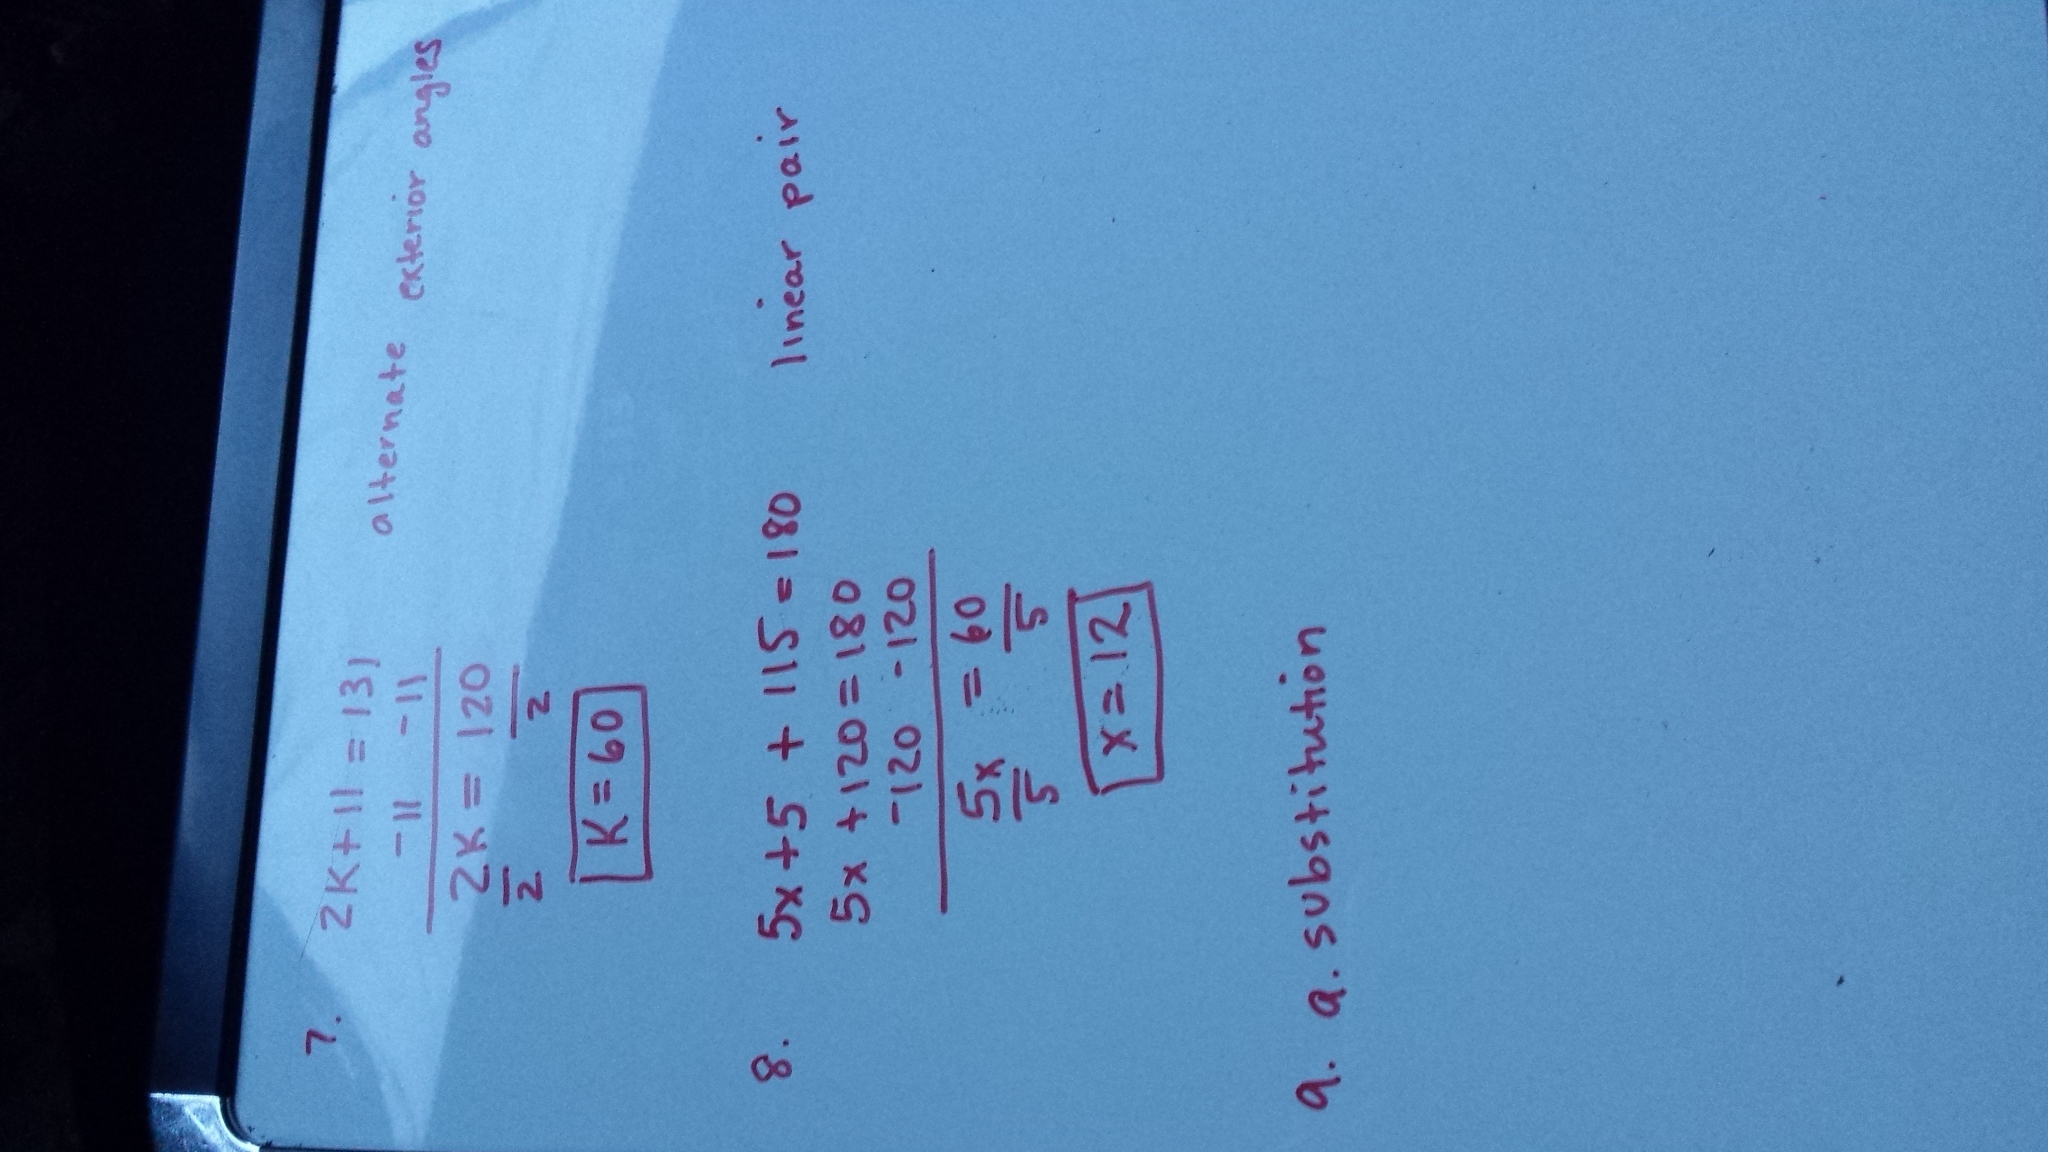 7. 2K+11=131 alternate exterior angles
-11 -11
2K = 120
2 2
K=60
8. 5x+5 + 115=180 linear pair
5x +120=180
-120 -120
5x = 60
5 5
x=12
9. a. substitution